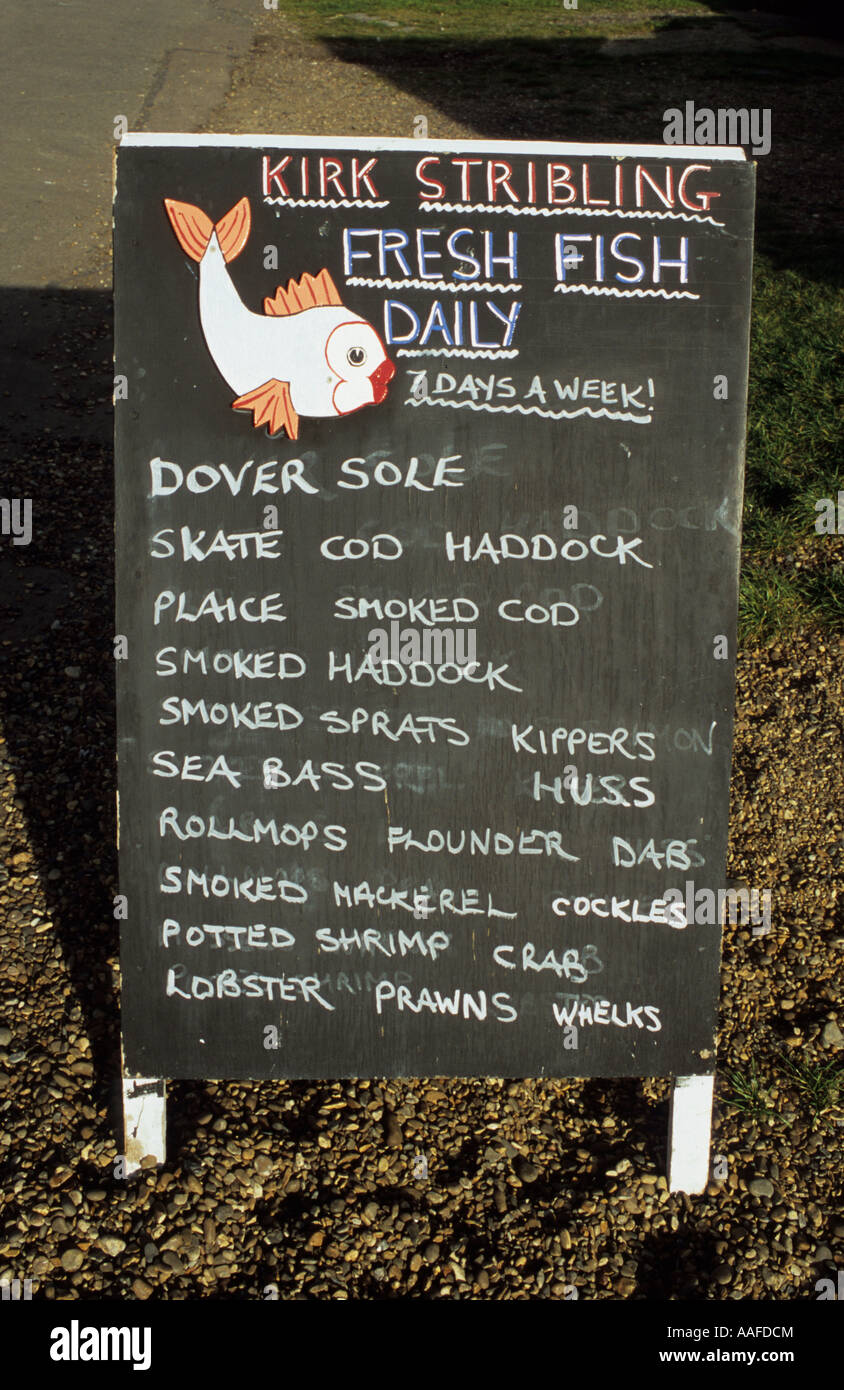 KIRK STRIBLING
FRESH FISH
DAILY
7 DAYS A WEEK!
DOVER SOLE
SKATE COD HADDOCK
PLAICE SMOKED COD
SMOKED HADDOCK
SMOKED SPRATS KIPPERS
SEA BASS HUSS
ROLLMOPS FLOUNDER DAB
SMOKED MACKEREL COCKLES
POTTED SHRIMP CRAB
LOBSTER PRAWNS WHELKS
alamy
Image ID: AAFDCM
www.alamy.com